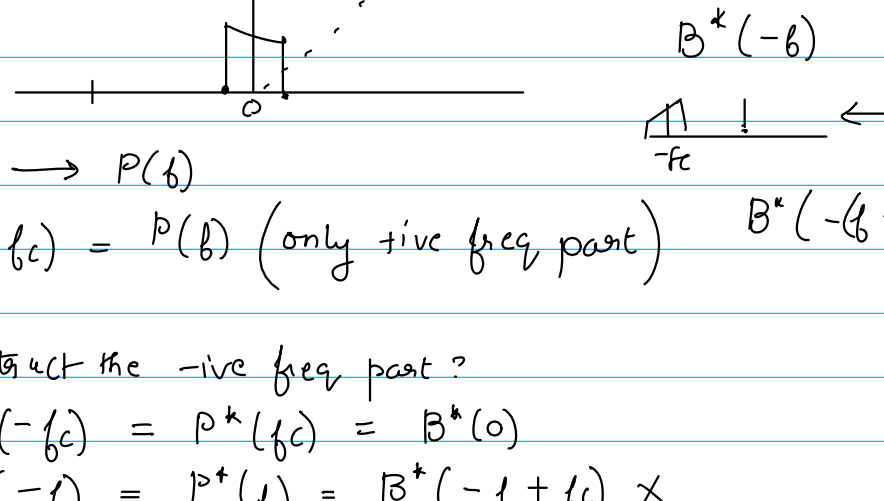 B*(-f)
0
-fc
→ P(f)
B*(-(f
fc) = P(f) (only +ive freq part)
truct the -ive freq part?
(-fc) = P*(fc) = B*(0)